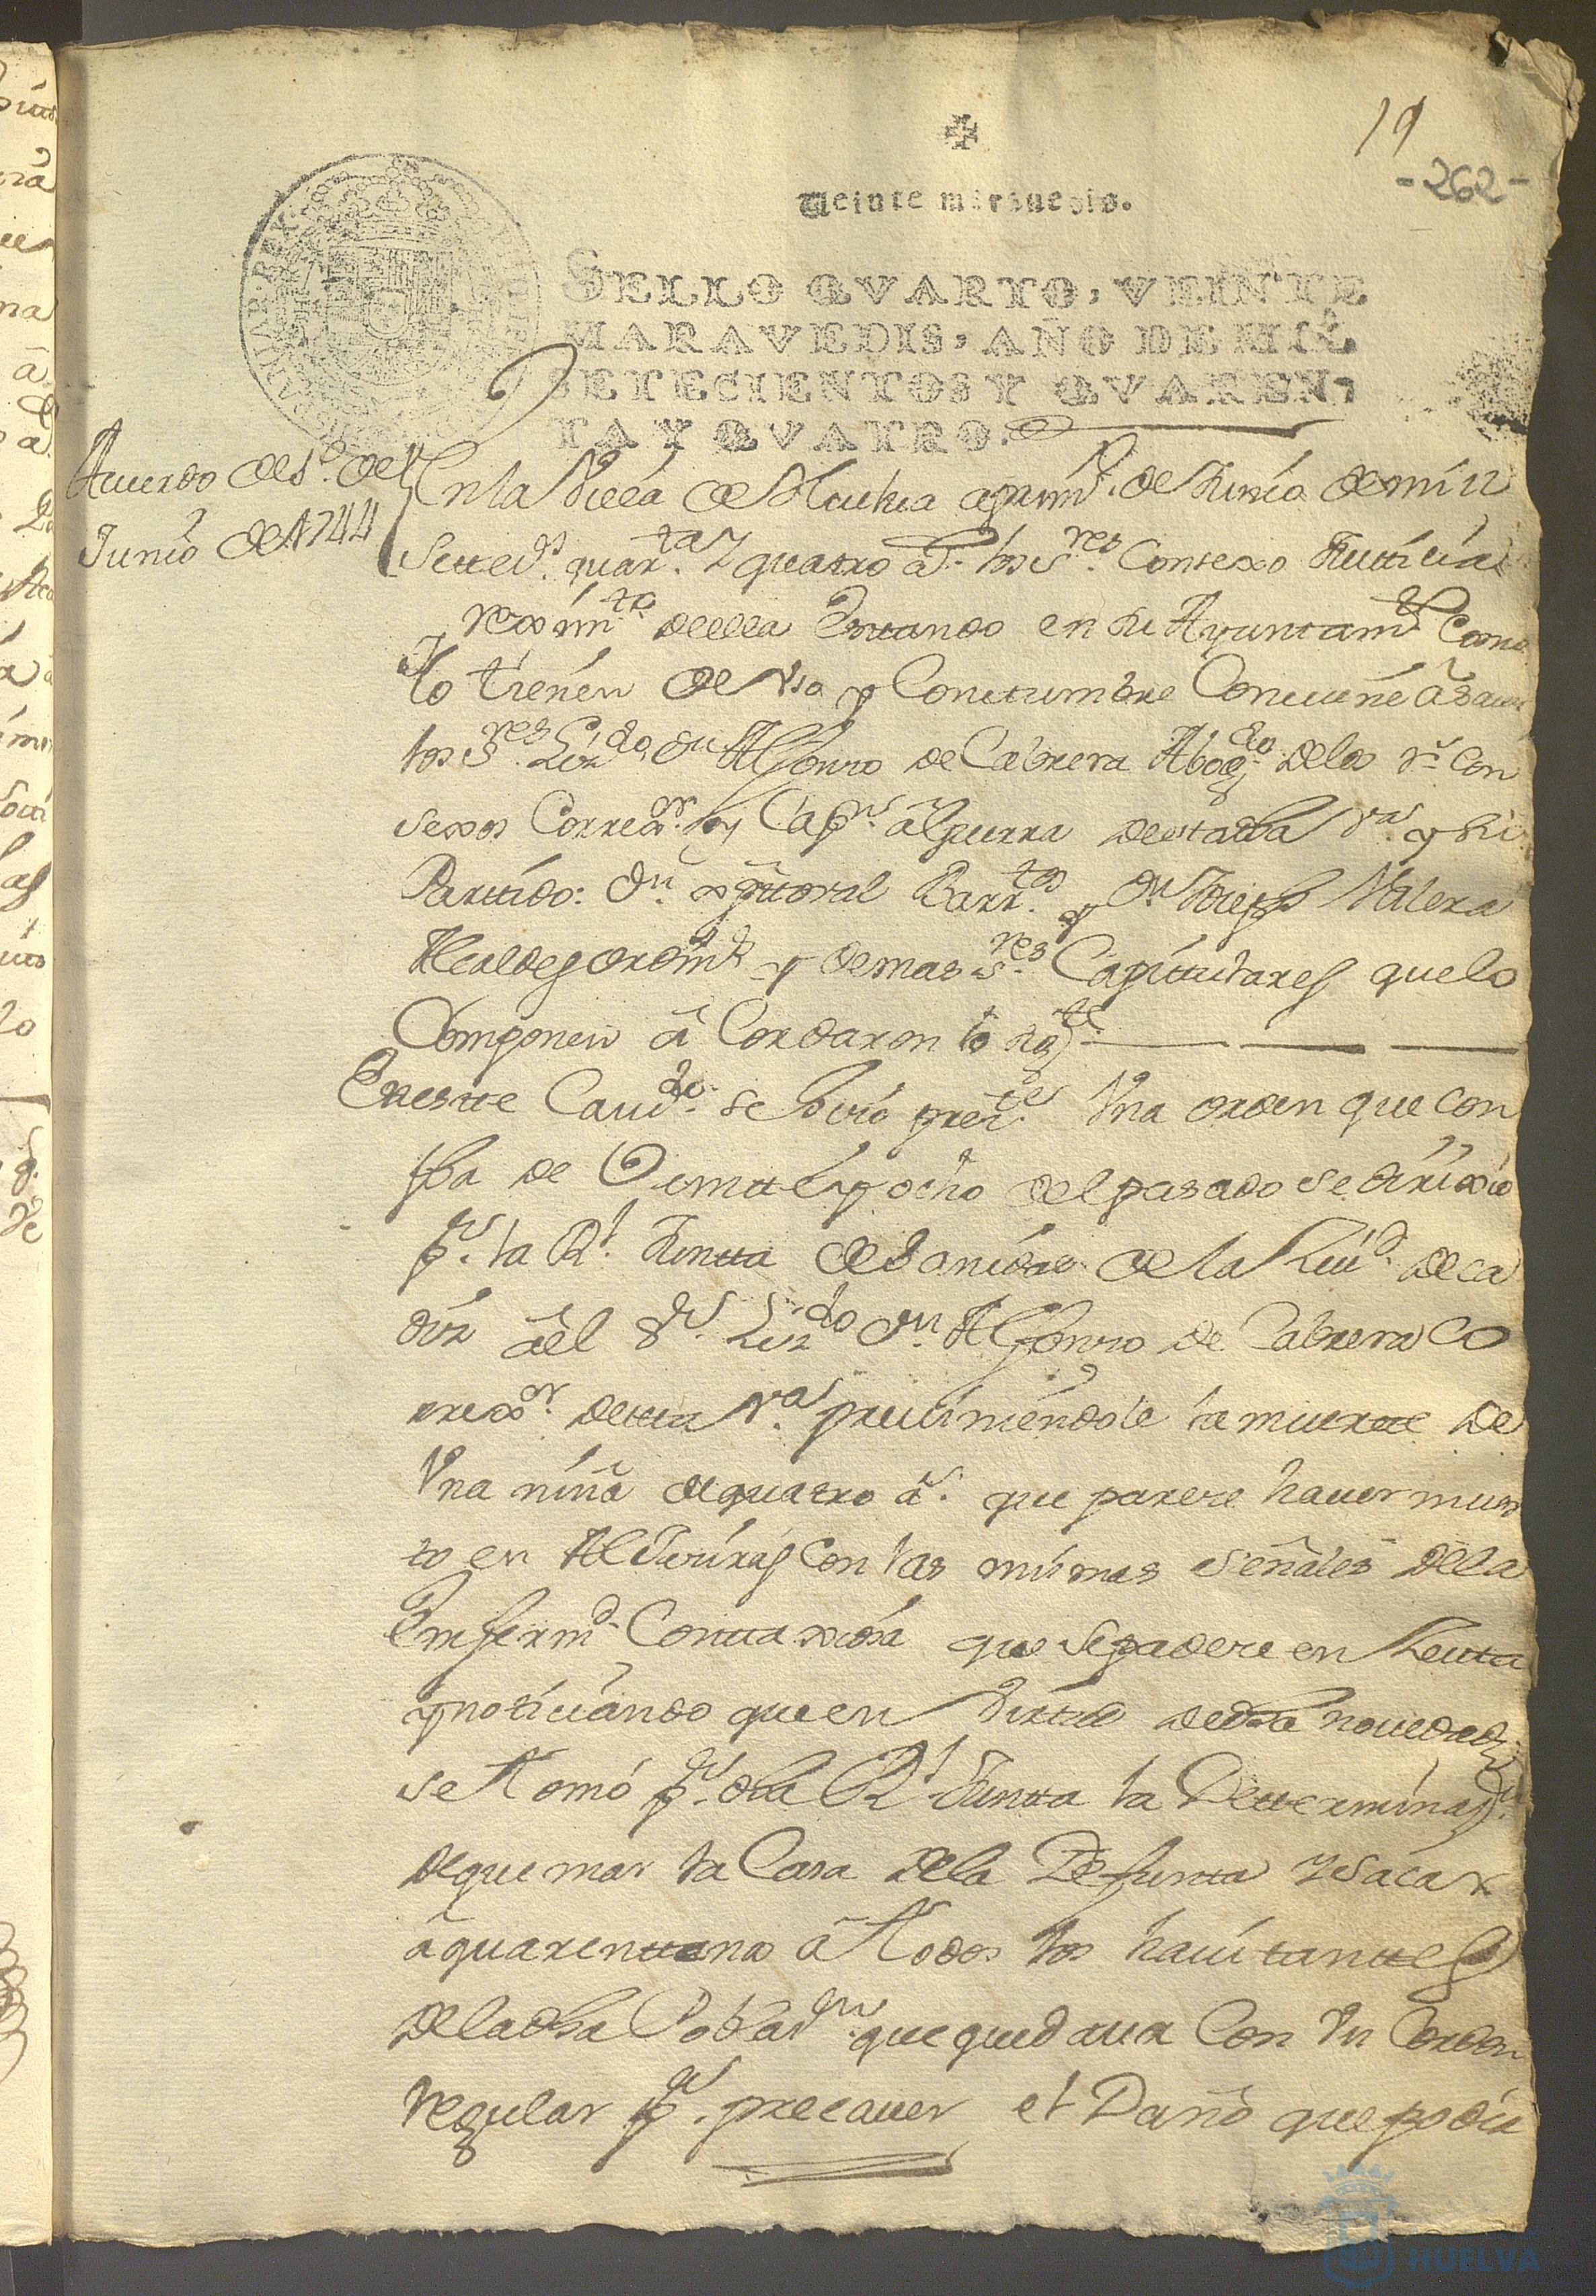 19
-262-
Veinte maravedis.
SELLO QVARTO, VEINTE
MARAVEDIS, AÑO DE MIL
SETECIENTOS Y QVAREN-
TA Y QVATRO.
Acuerdo de 1º de
Junio de 1744
En la Villa de Huelva a prim.º de Junio de mill
Settez.s quar.ta y quatro a.s los S.res Consexo Justicia
reximi.to de ella Estando en su Ayuntam.to Como
lo tienen de Vso y Constumbre Conviene a sauer
los S.res Liz.do Dn Alfonso de Cabrera Abog.do de los R.s Con
sexos Correx.or y Cap.n a Guerra de esta dha V.a y su
Partido: Dn. Xptoval Barr.tos y Dn Joseph Valera
Alcaldes ordin.s y demas S.res Capitulares que lo
Componen a Cordaron lo sig.te
En este Caudo se Vio prez.te Vna orden que con
fha de Veinte y ocho del pasado se dirixio
p.r la R.l Junta de Sanidad de la Ciud. de Ca
diz a el S.r Liz.do Dn. Alfonso de Cabrera Co
rrex.or de esta V.a previniendole la muerte de
Vna niña de quatro a.s que parece hauer muer
to en Alxeziras Con las mismas señales de la
Enfermd. Conttaxiosa que se padece en Zeuta
y noticiando que en Virtud de dha novedad
se tomó p.r dha R.l Juntta la Detterminaz.n
de quemar la Casa de la Defunta y sacar
a quarenttena a todos los hauitanttes
de la dha Poblaz.n que quedaua Con Vn Cordon
regular p.a precauer el Daño que podia
HUELVA